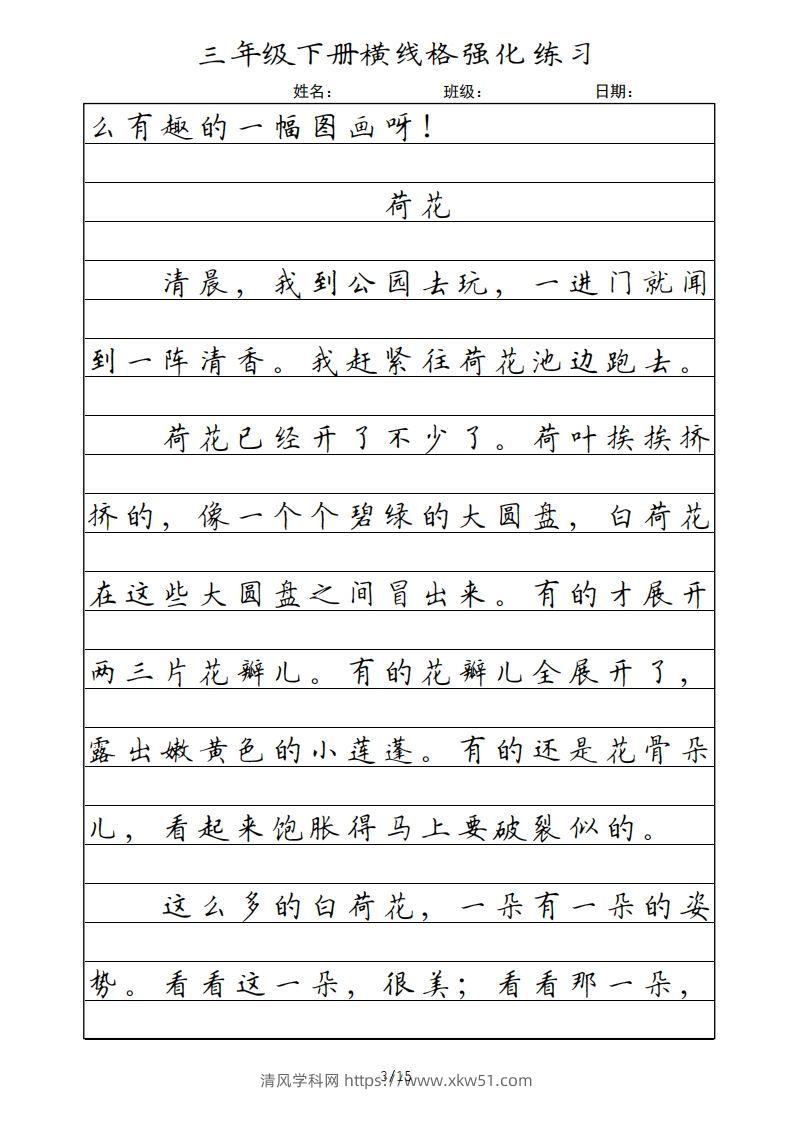 三年级下册横线格强化练习
姓名： 班级： 日期：
么有趣的一幅图画呀！
荷花
清晨，我到公园去玩，一进门就闻
到一阵清香。我赶紧往荷花池边跑去。
荷花已经开了不少了。荷叶挨挨挤
挤的，像一个个碧绿的大圆盘，白荷花
在这些大圆盘之间冒出来。有的才展开
两三片花瓣儿。有的花瓣儿全展开了，
露出嫩黄色的小莲蓬。有的还是花骨朵
儿，看起来饱胀得马上要破裂似的。
这么多的白荷花，一朵有一朵的姿
势。看看这一朵，很美；看看那一朵，
3/15
清风学科网 https://www.xkw51.com